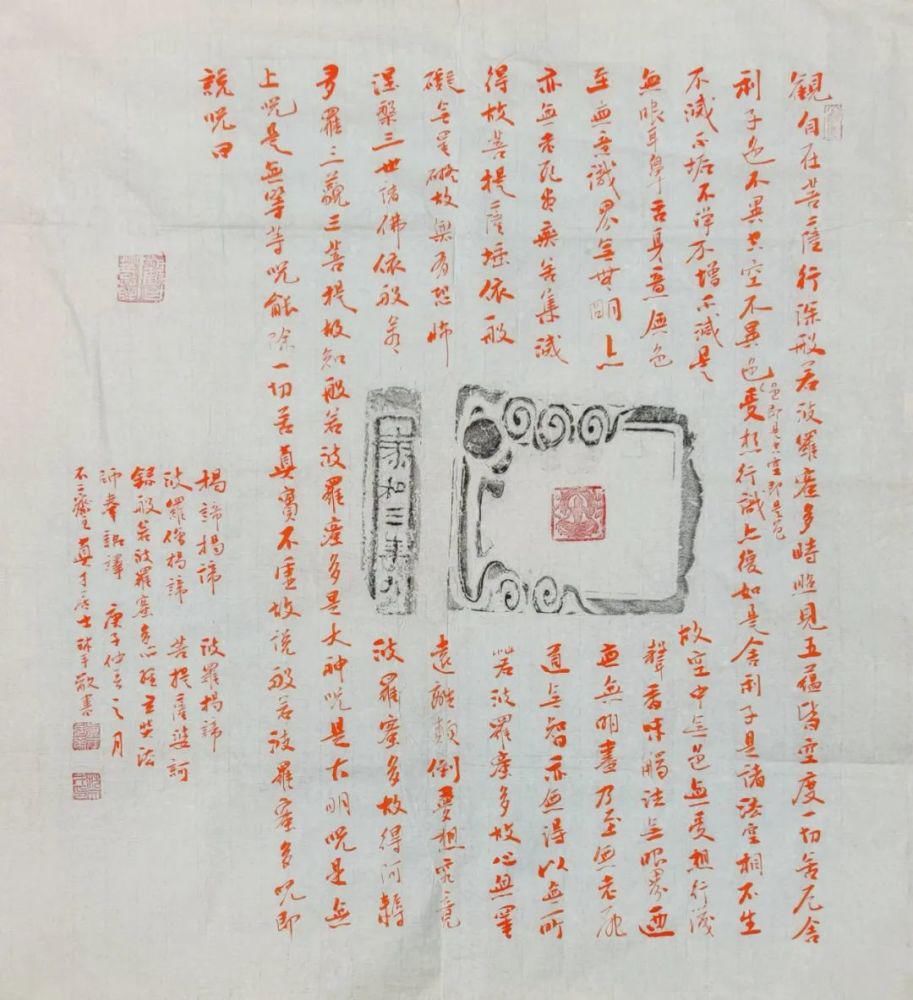 觀自在菩薩行深般若波羅蜜多時照見五蘊皆空度一切苦厄舍
利子色不異空空不異色受想行識亦復如是舍利子是諸法空相不生
色即是空空即是色
不滅不垢不淨不增不減是故空中無色無受想行識
無眼耳鼻舌身意無色聲香味觸法無眼界迺
至無意識界無無明亦無無明盡乃至無老死
亦無老死盡無苦集滅道無智亦無得以無所
得故菩提薩埵依般若波羅蜜多故心無罣
礙無罣礙故無有恐怖遠離顛倒夢想究竟
涅槃三世諸佛依般若波羅蜜多故得阿耨
多羅三藐三菩提故知般若波羅蜜多是大神咒是大明咒是無
上咒是無等等咒能除一切苦真實不虛故說般若波羅蜜多咒即
說咒曰
揭諦揭諦 波羅揭諦
波羅僧揭諦 菩提薩婆訶
錄般若波羅蜜多心經玄奘法
師奉詔譯 庚子仲春之月
敬書
和三年八